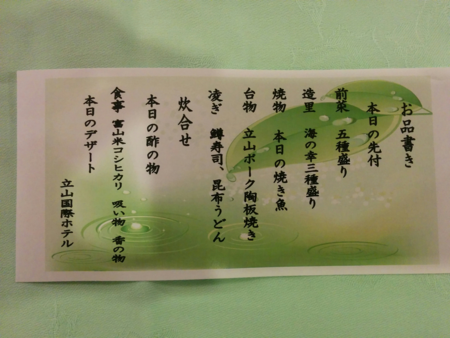 お品書き
本日の先付
前菜 五種盛り
造里 海の幸三種盛り
焼物 本日の焼き魚
台物 立山ポーク陶板焼き
凌ぎ 鱒寿司、昆布うどん
炊合せ
本日の酢の物
食事 富山米コシヒカリ 吸い物 香の物
本日のデザート
立山国際ホテル